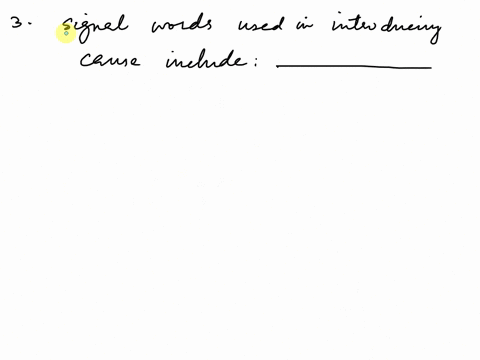 3. signal words used in introducing
cause include: __________